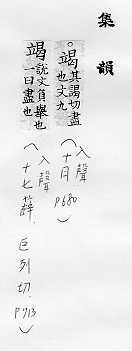 集韻
。竭其謁切盡
也文九
（入聲
十月
P680）
竭說文負舉也
一曰盡也
（入聲
十七薛，巨列切，P713）